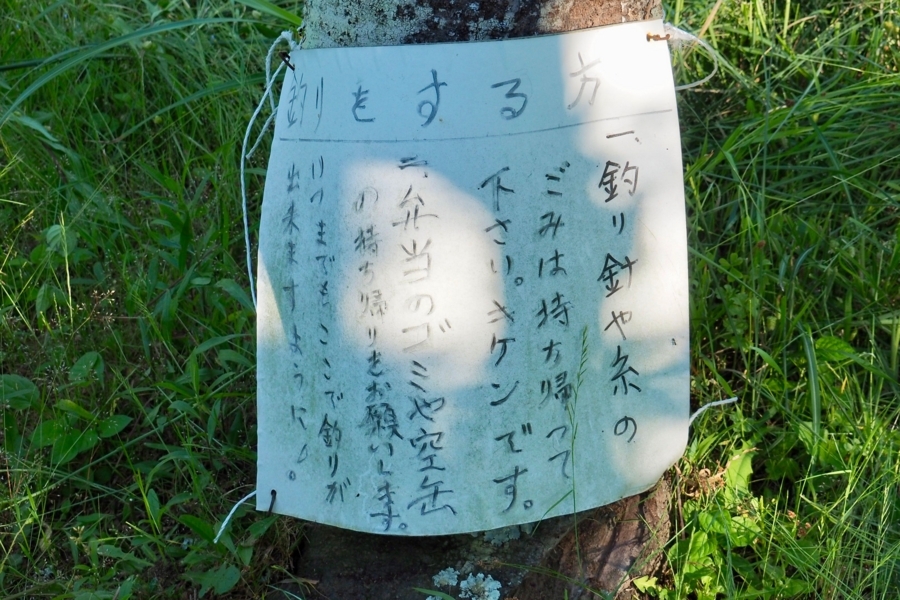 釣りをする方
一、釣り針や糸の
ごみは持ち帰って
下さい。キケンです。
二、弁当のゴミや空缶
の持ち帰りをお願いします。
いつまでもここで釣りが
出来ますように。